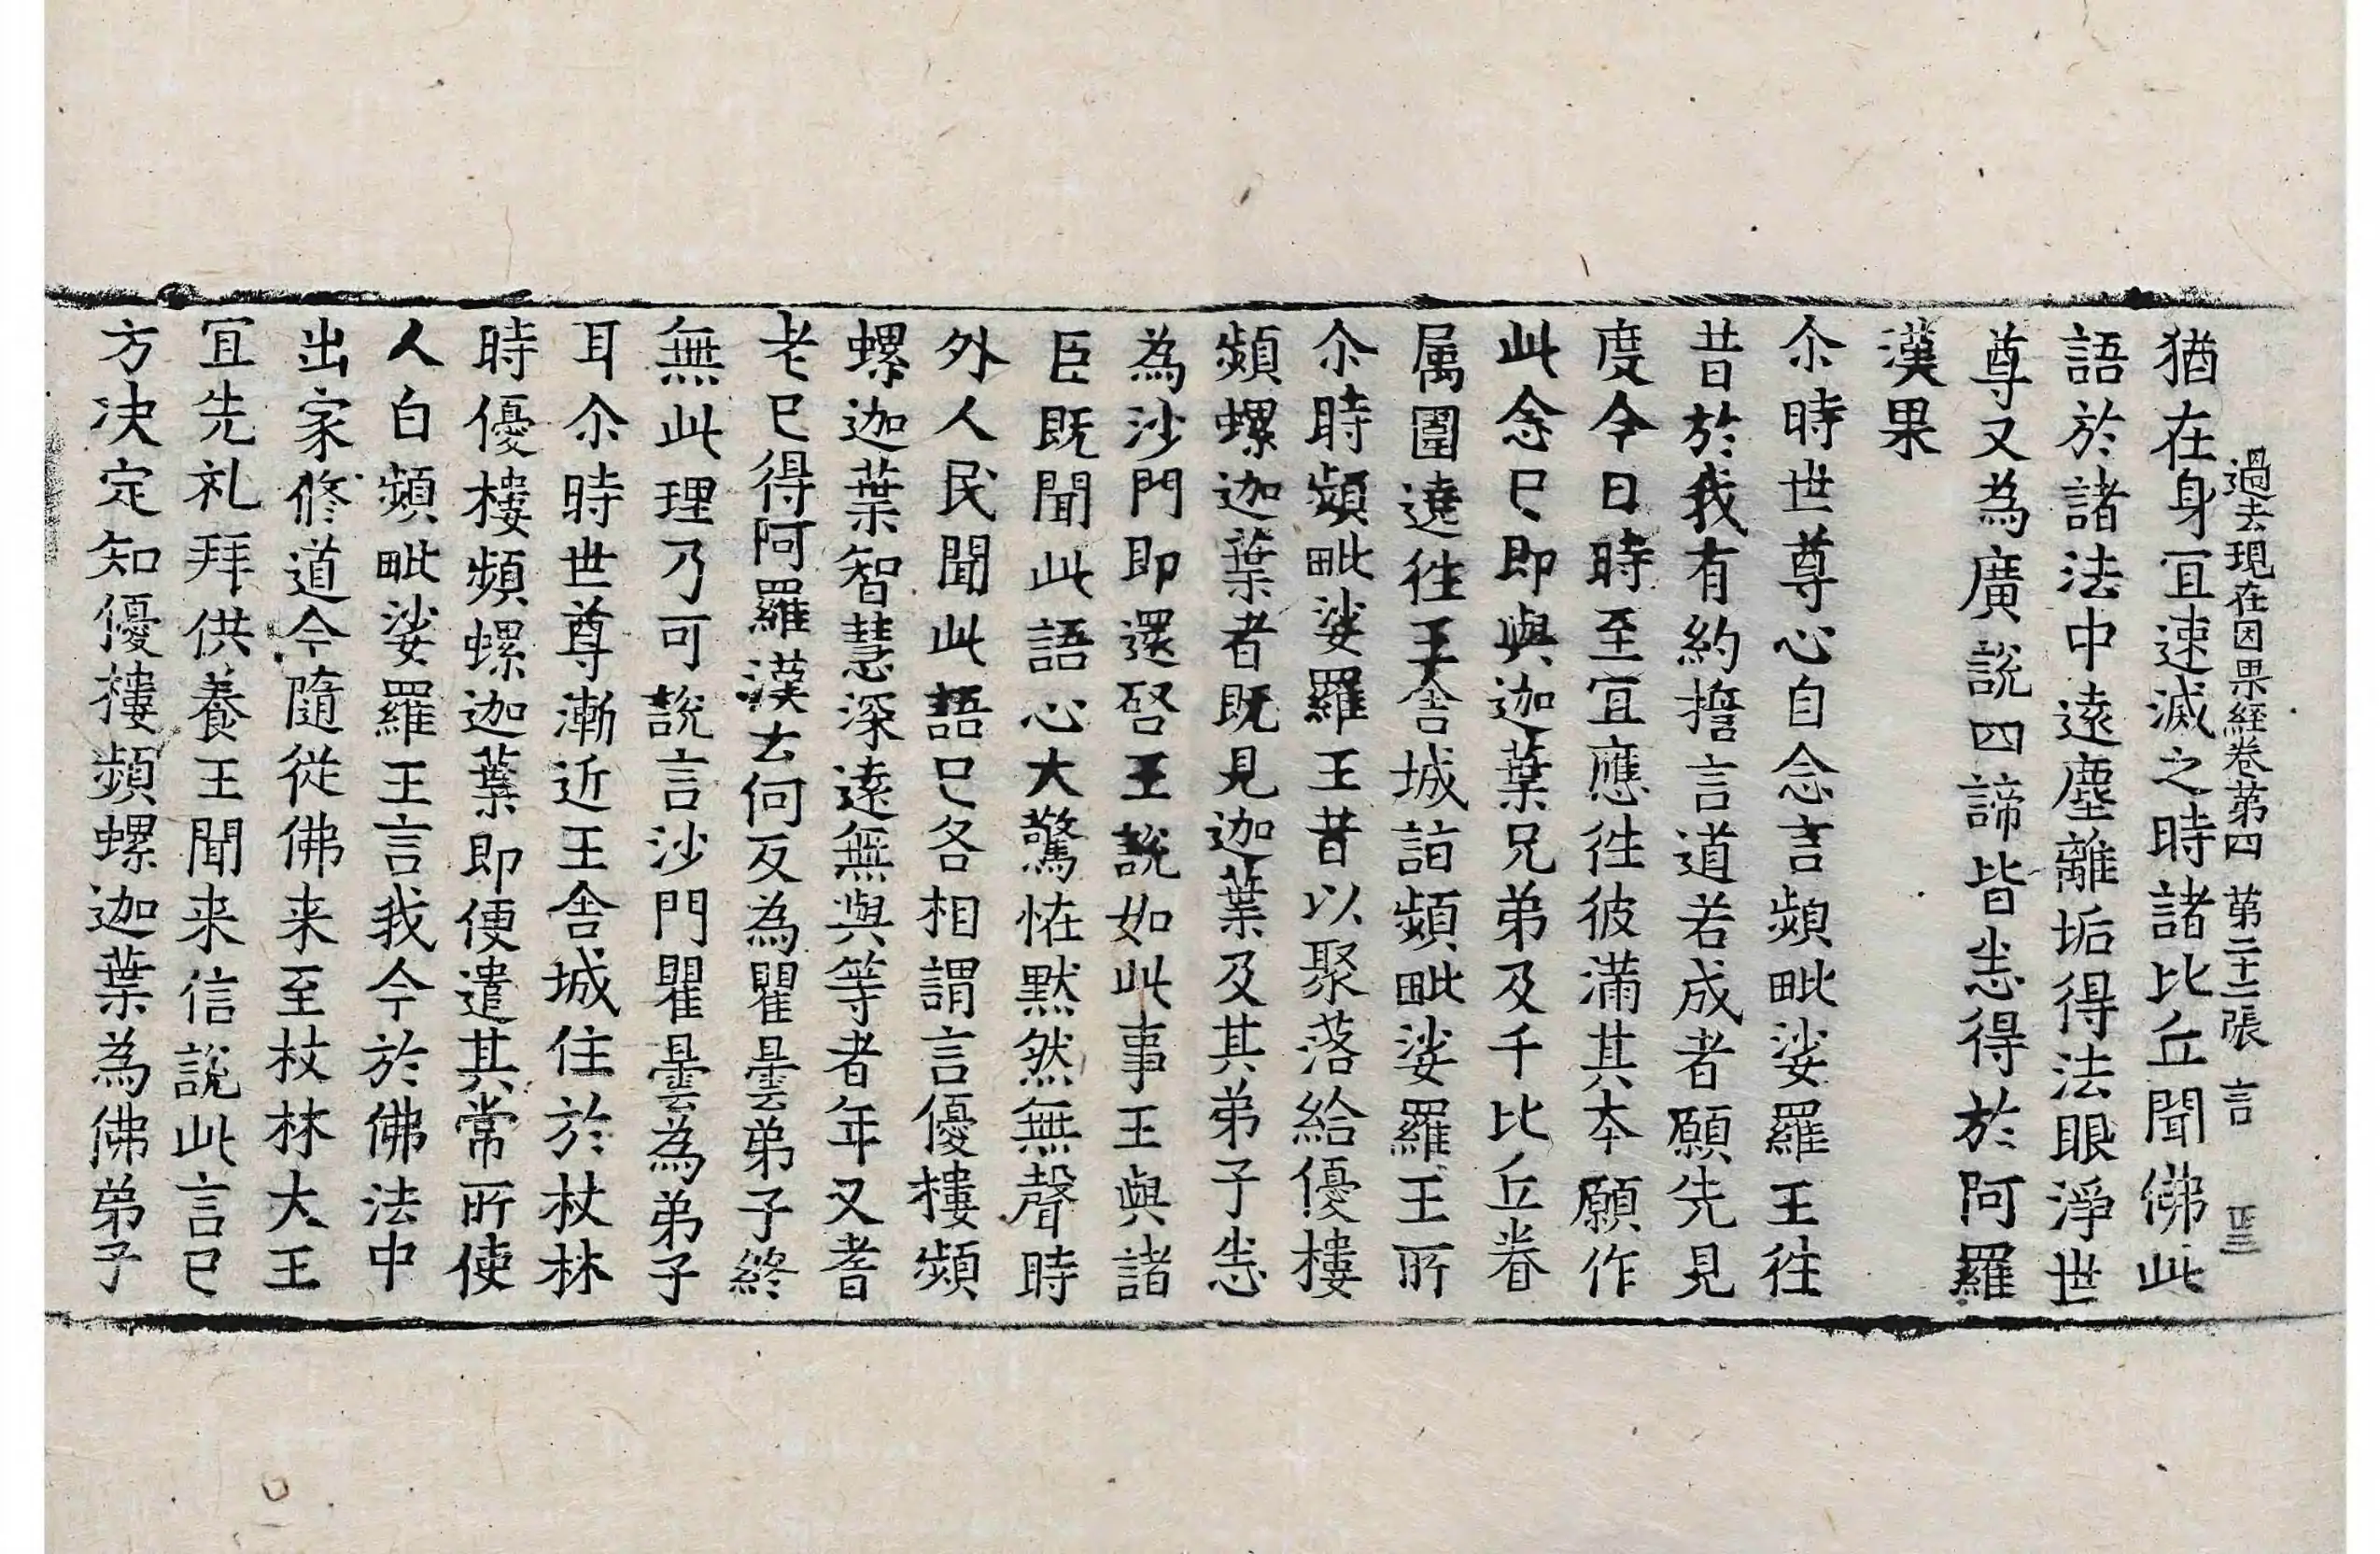 過去現在因果経卷苐四 苐二十二張 言
猶在身冝速滅之時諸比丘聞佛此
語於諸法中遠塵離垢得法眼淨世
尊又為廣說四諦皆悉得於阿羅
漢果
尒時世尊心自念言頻毗娑羅王徃
昔於我有約擔言道若成者願先見
度今日時至冝應徃彼滿其夲願作
此念已即與迦葉兄弟及千比丘眷
属圍遶徃王舍城詣頻毗娑羅王所
尒時頻毗娑羅王昔以聚落給優樓
頻螺迦葉者既見迦葉及其弟子悉
為沙門即還啓王說如此事王與諸
臣既聞此語心大驚恠黙然無聲時
外人民聞此語已各相謂言優樓頻
螺迦葉智慧深遠無與等者年又耆
老已得阿羅漢云何反為瞿曇弟子終
無此理乃可說言沙門瞿曇為弟子
耳尒時世尊漸近王舍城住於杖林
時優樓頻螺迦葉即便遣其常所使
人白頻毗娑羅王言我今於佛法中
出家修道今隨從佛来至杖林大王
冝先礼拜供養王聞来信說此言已
方决定知優樓頻螺迦葉為佛弟子